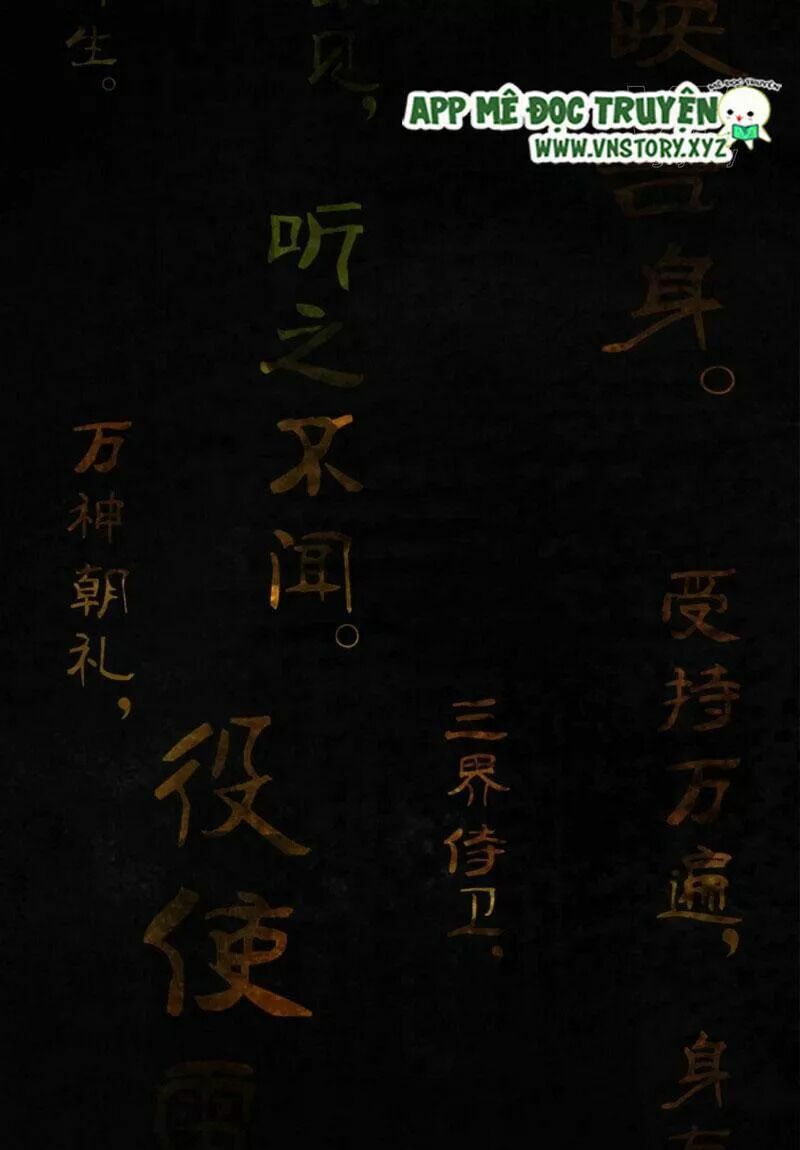 APP MÊ ĐỌC TRUYỆN
WWW.VNSTORY.XYZ
映
吾
身。
受持万遍，
身
三界侍卫，
见，
听之不闻。
役使
雷
生。
万神朝礼，